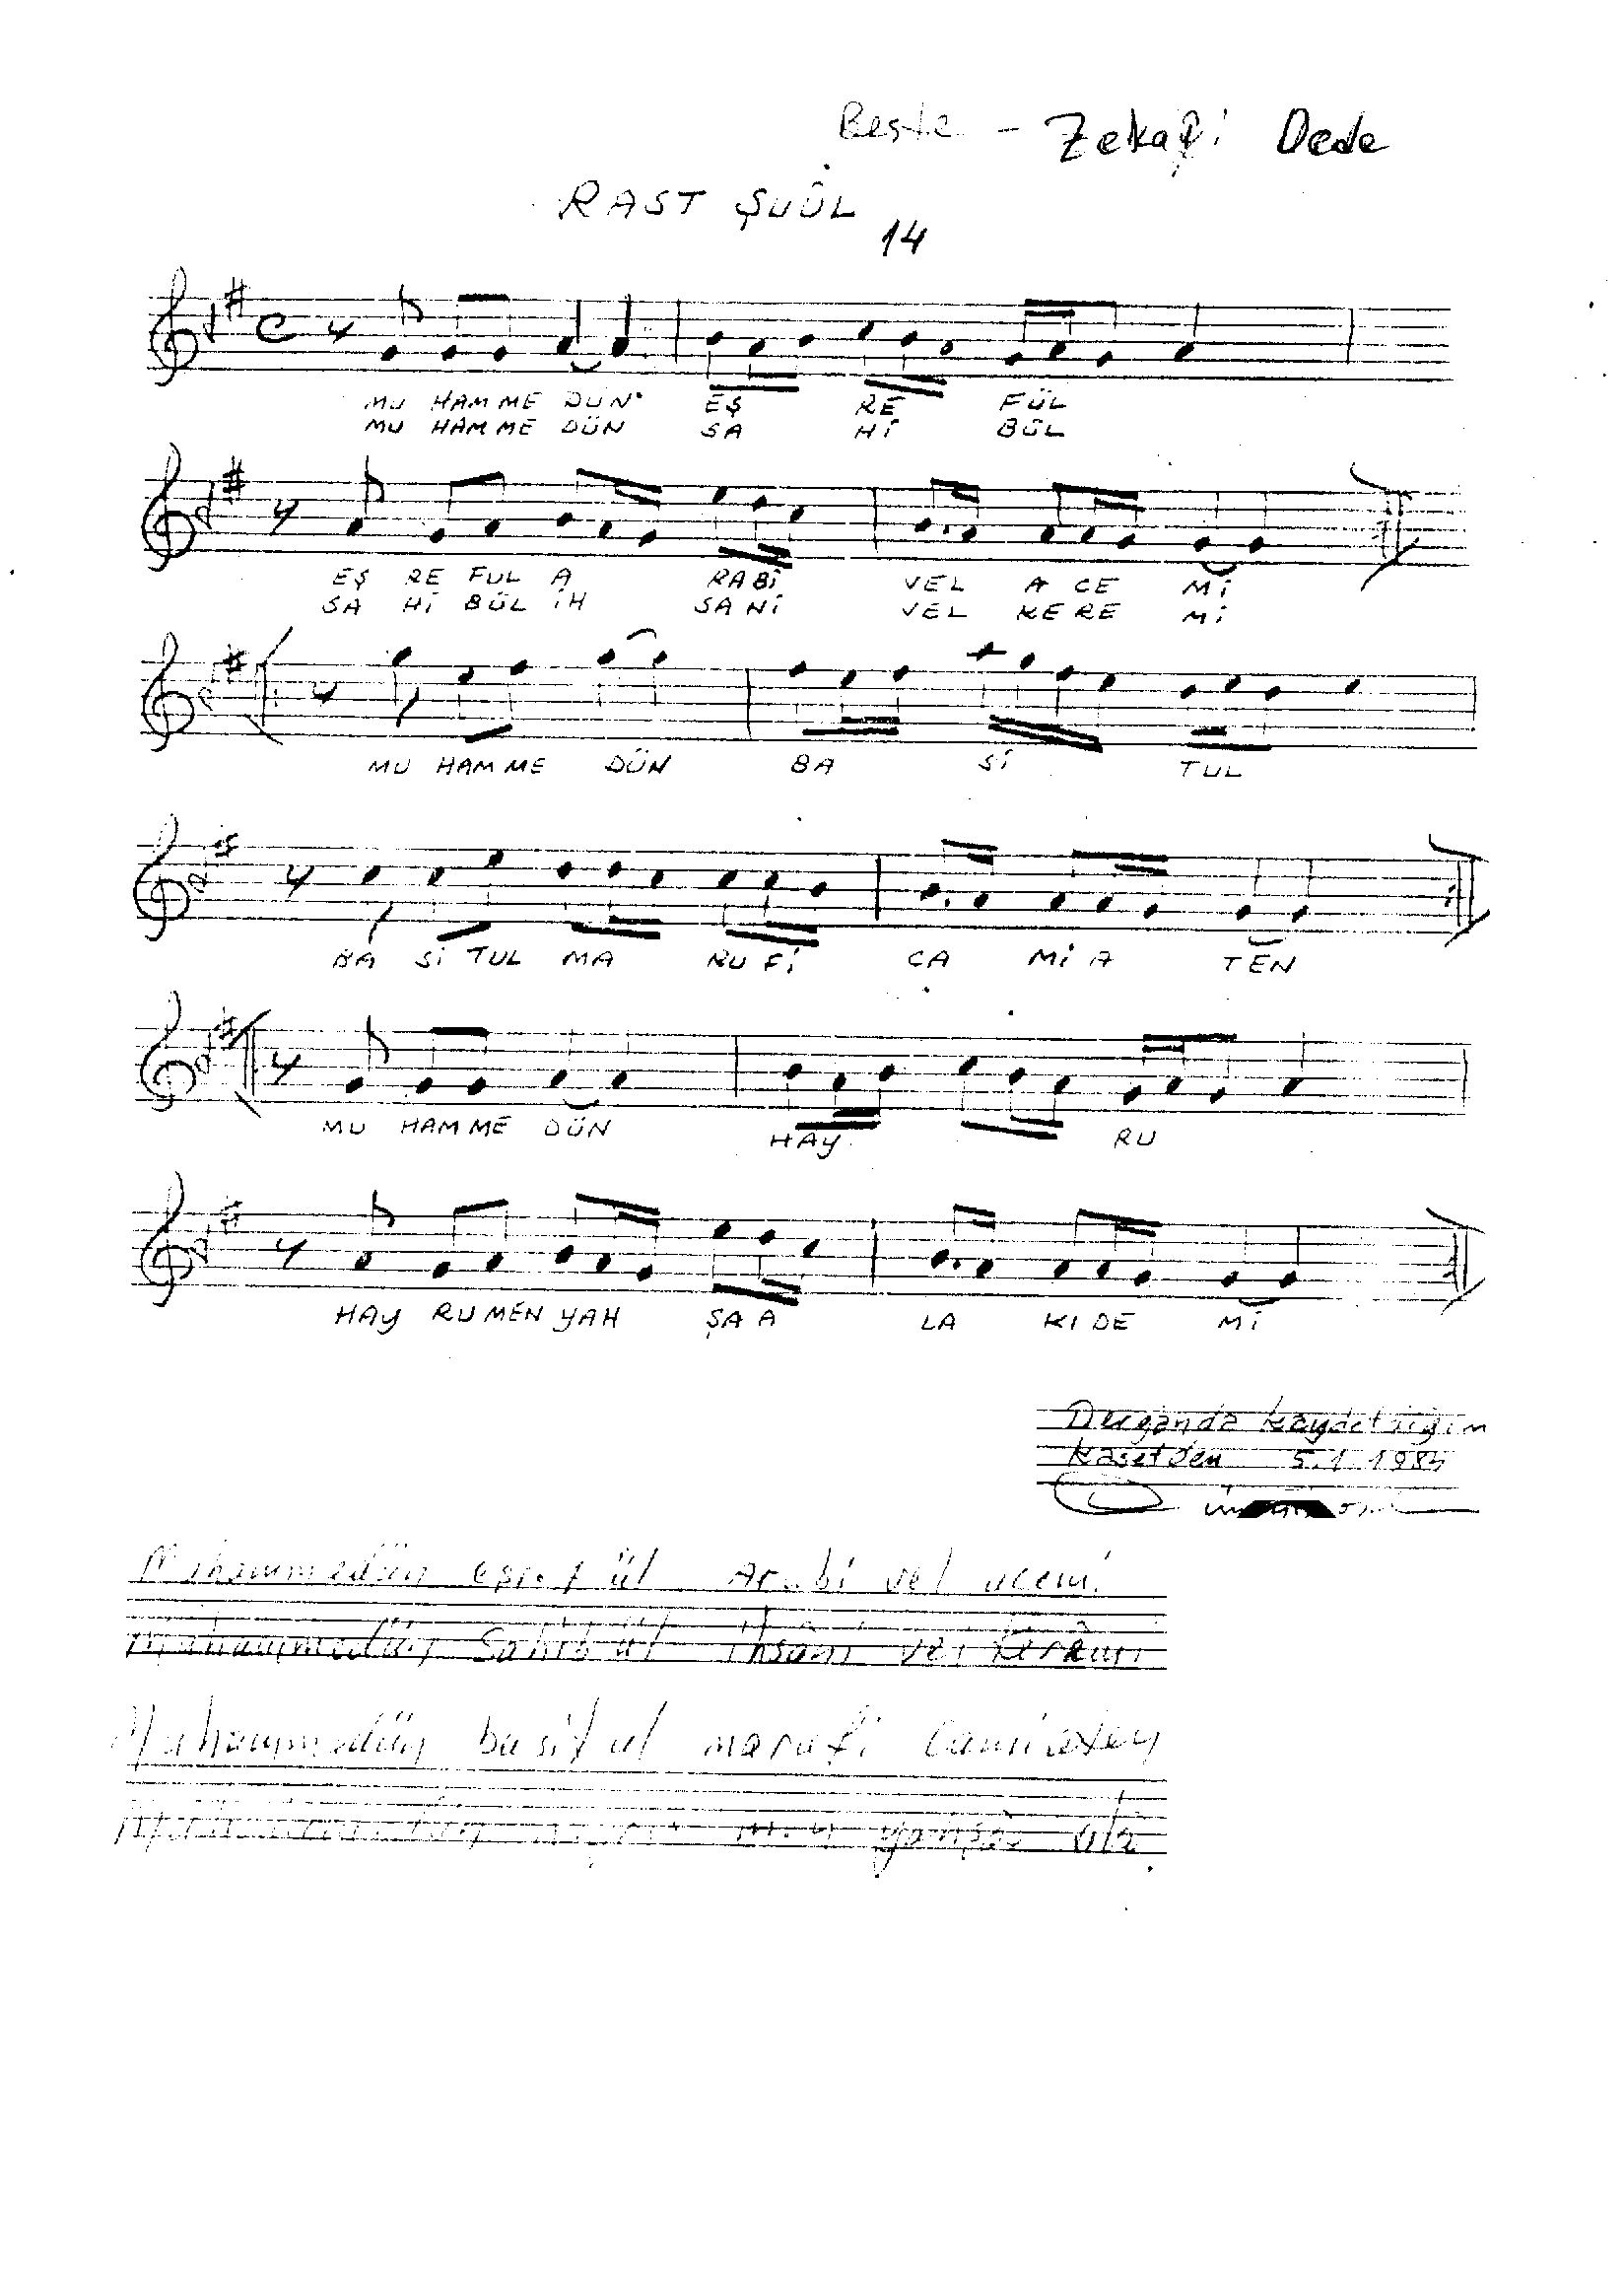 Beste - Zekai Dede
RAST ŞUÛL
14
MU HAM ME DÜN EŞ RE FÜL
MU HAM ME DÜN SA Hİ BÜL
EŞ RE FUL A RABİ VEL A CE Mİ
SA Hİ BÜL İH SANİ VEL KE RE Mİ
MU HAM ME DÜN BA Sİ TUL
BA Sİ TUL MA RU Fİ CA Mİ A TEN
MU HAM ME DÜN HAY RU
HAY RU MEN YAH ŞA A LA KI DE Mİ
kaydettiğim
kasetden 5.1.198
Muhammedün eşref ül Arabi vel acemi
Muhammedün Sahib ül ihsani vel keremi
Muhammedün basit ul marufi Camiaten
yamşaa ala